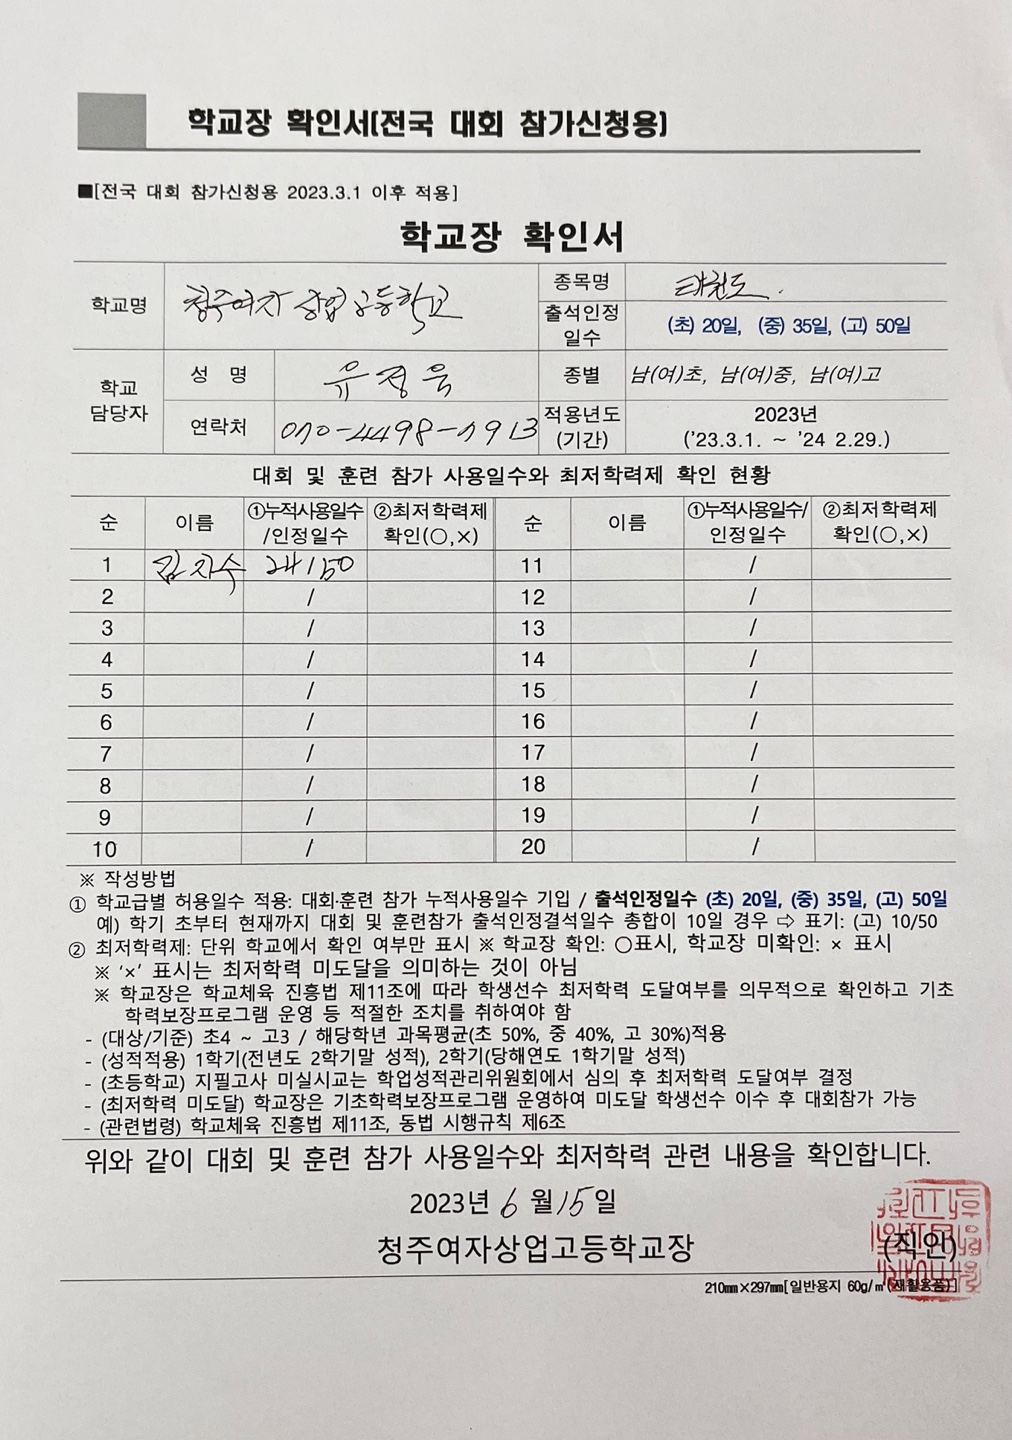 학교장 확인서(전국 대회 참가신청용)
■[전국 대회 참가신청용 2023.3.1 이후 적용]
학교장 확인서
학교명 청주여자 상업고등학교 종목명 태권도.
출석인정 일수 (초) 20일, (중) 35일, (고) 50일
학교 담당자 성 명 유정욱 종별 남(여)초, 남(여)중, 남(여)고
연락처 010-4498-1913 적용년도 (기간) 2023년 ('23.3.1. ~ '24 2.29.)
대회 및 훈련 참가 사용일수와 최저학력제 확인 현황
순 이름 ①누적사용일수/인정일수 ②최저학력제 확인(○,×) 순 이름 ①누적사용일수/인정일수 ②최저학력제 확인(○,×)
1 김지수 24/50 11 /
2 / 12 /
3 / 13 /
4 / 14 /
5 / 15 /
6 / 16 /
7 / 17 /
8 / 18 /
9 / 19 /
10 / 20 /
※ 작성방법
① 학교급별 허용일수 적용: 대회·훈련 참가 누적사용일수 기입 / 출석인정일수 (초) 20일, (중) 35일, (고) 50일
예) 학기 초부터 현재까지 대회 및 훈련참가 출석인정결석일수 총합이 10일 경우 ⇨ 표기: (고) 10/50
② 최저학력제: 단위 학교에서 확인 여부만 표시 ※ 학교장 확인: ○표시, 학교장 미확인: × 표시
※ '×' 표시는 최저학력 미도달을 의미하는 것이 아님
※ 학교장은 학교체육 진흥법 제11조에 따라 학생선수 최저학력 도달여부를 의무적으로 확인하고 기초
학력보장프로그램 운영 등 적절한 조치를 취하여야 함
- (대상/기준) 초4 ~ 고3 / 해당학년 과목평균(초 50%, 중 40%, 고 30%)적용
- (성적적용) 1학기(전년도 2학기말 성적), 2학기(당해연도 1학기말 성적)
- (초등학교) 지필고사 미실시교는 학업성적관리위원회에서 심의 후 최저학력 도달여부 결정
- (최저학력 미도달) 학교장은 기초학력보장프로그램 운영하여 미도달 학생선수 이수 후 대회참가 가능
- (관련법령) 학교체육 진흥법 제11조, 동법 시행규칙 제6조
위와 같이 대회 및 훈련 참가 사용일수와 최저학력 관련 내용을 확인합니다.
2023년 6 월 15 일
청주여자상업고등학교장 (직인)
210㎜×297㎜[일반용지 60g/㎡(재활용품)]